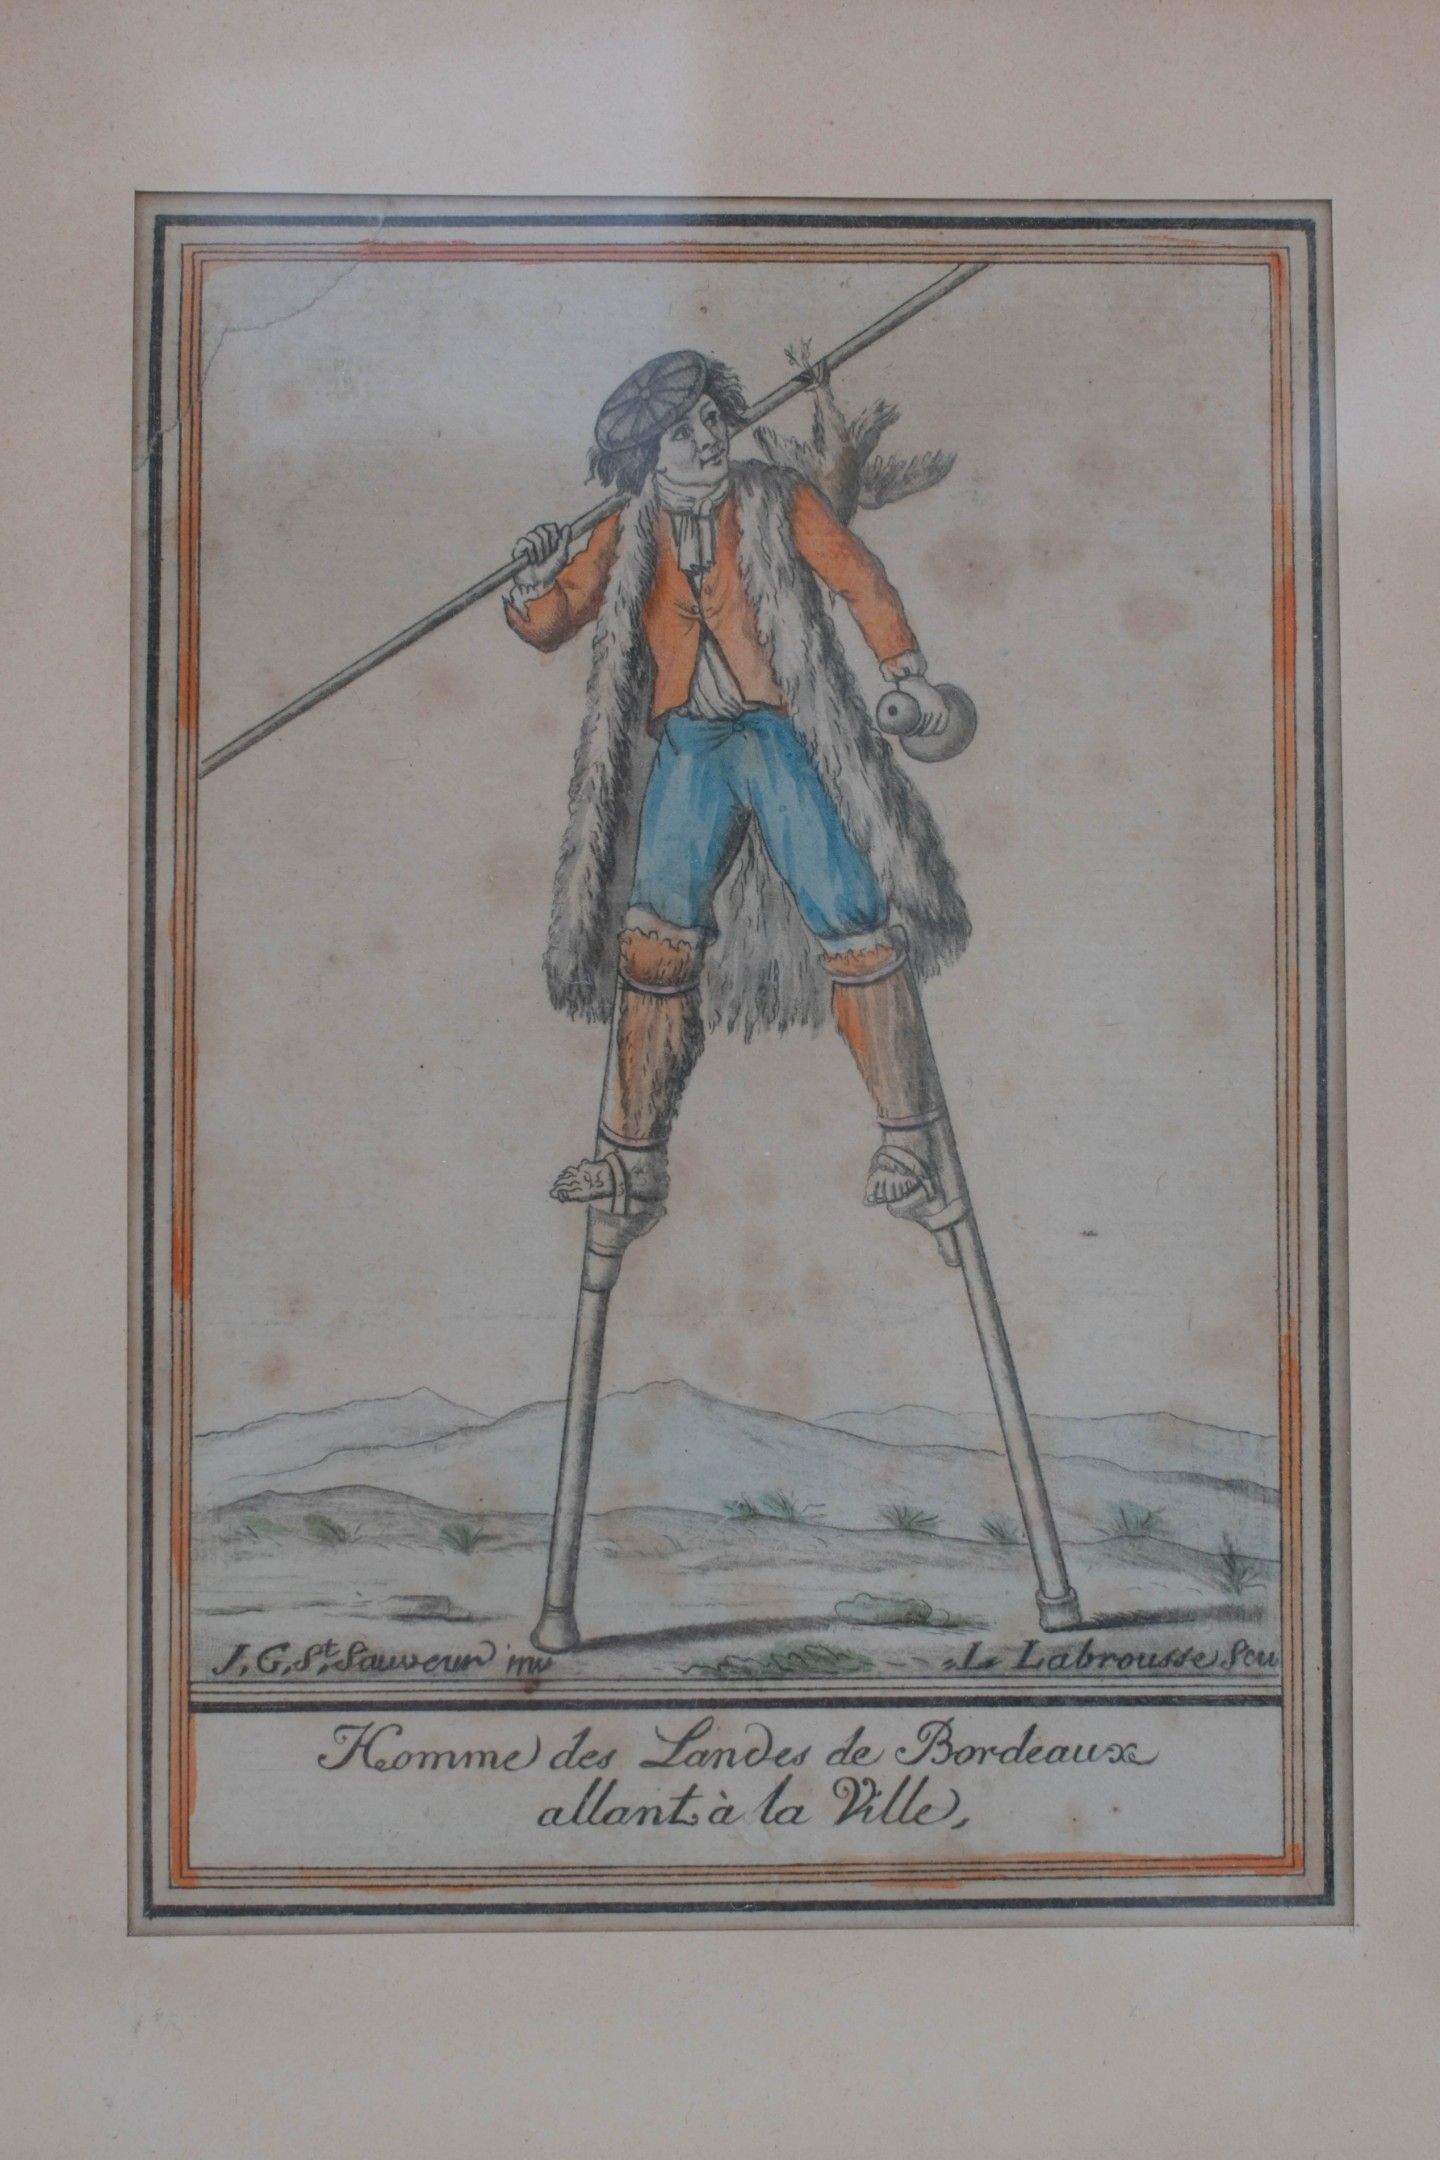 J. G. St. Sauveur inv
L. Labrousse Scu
Homme des Landes de Bordeaux
allant à la Ville,